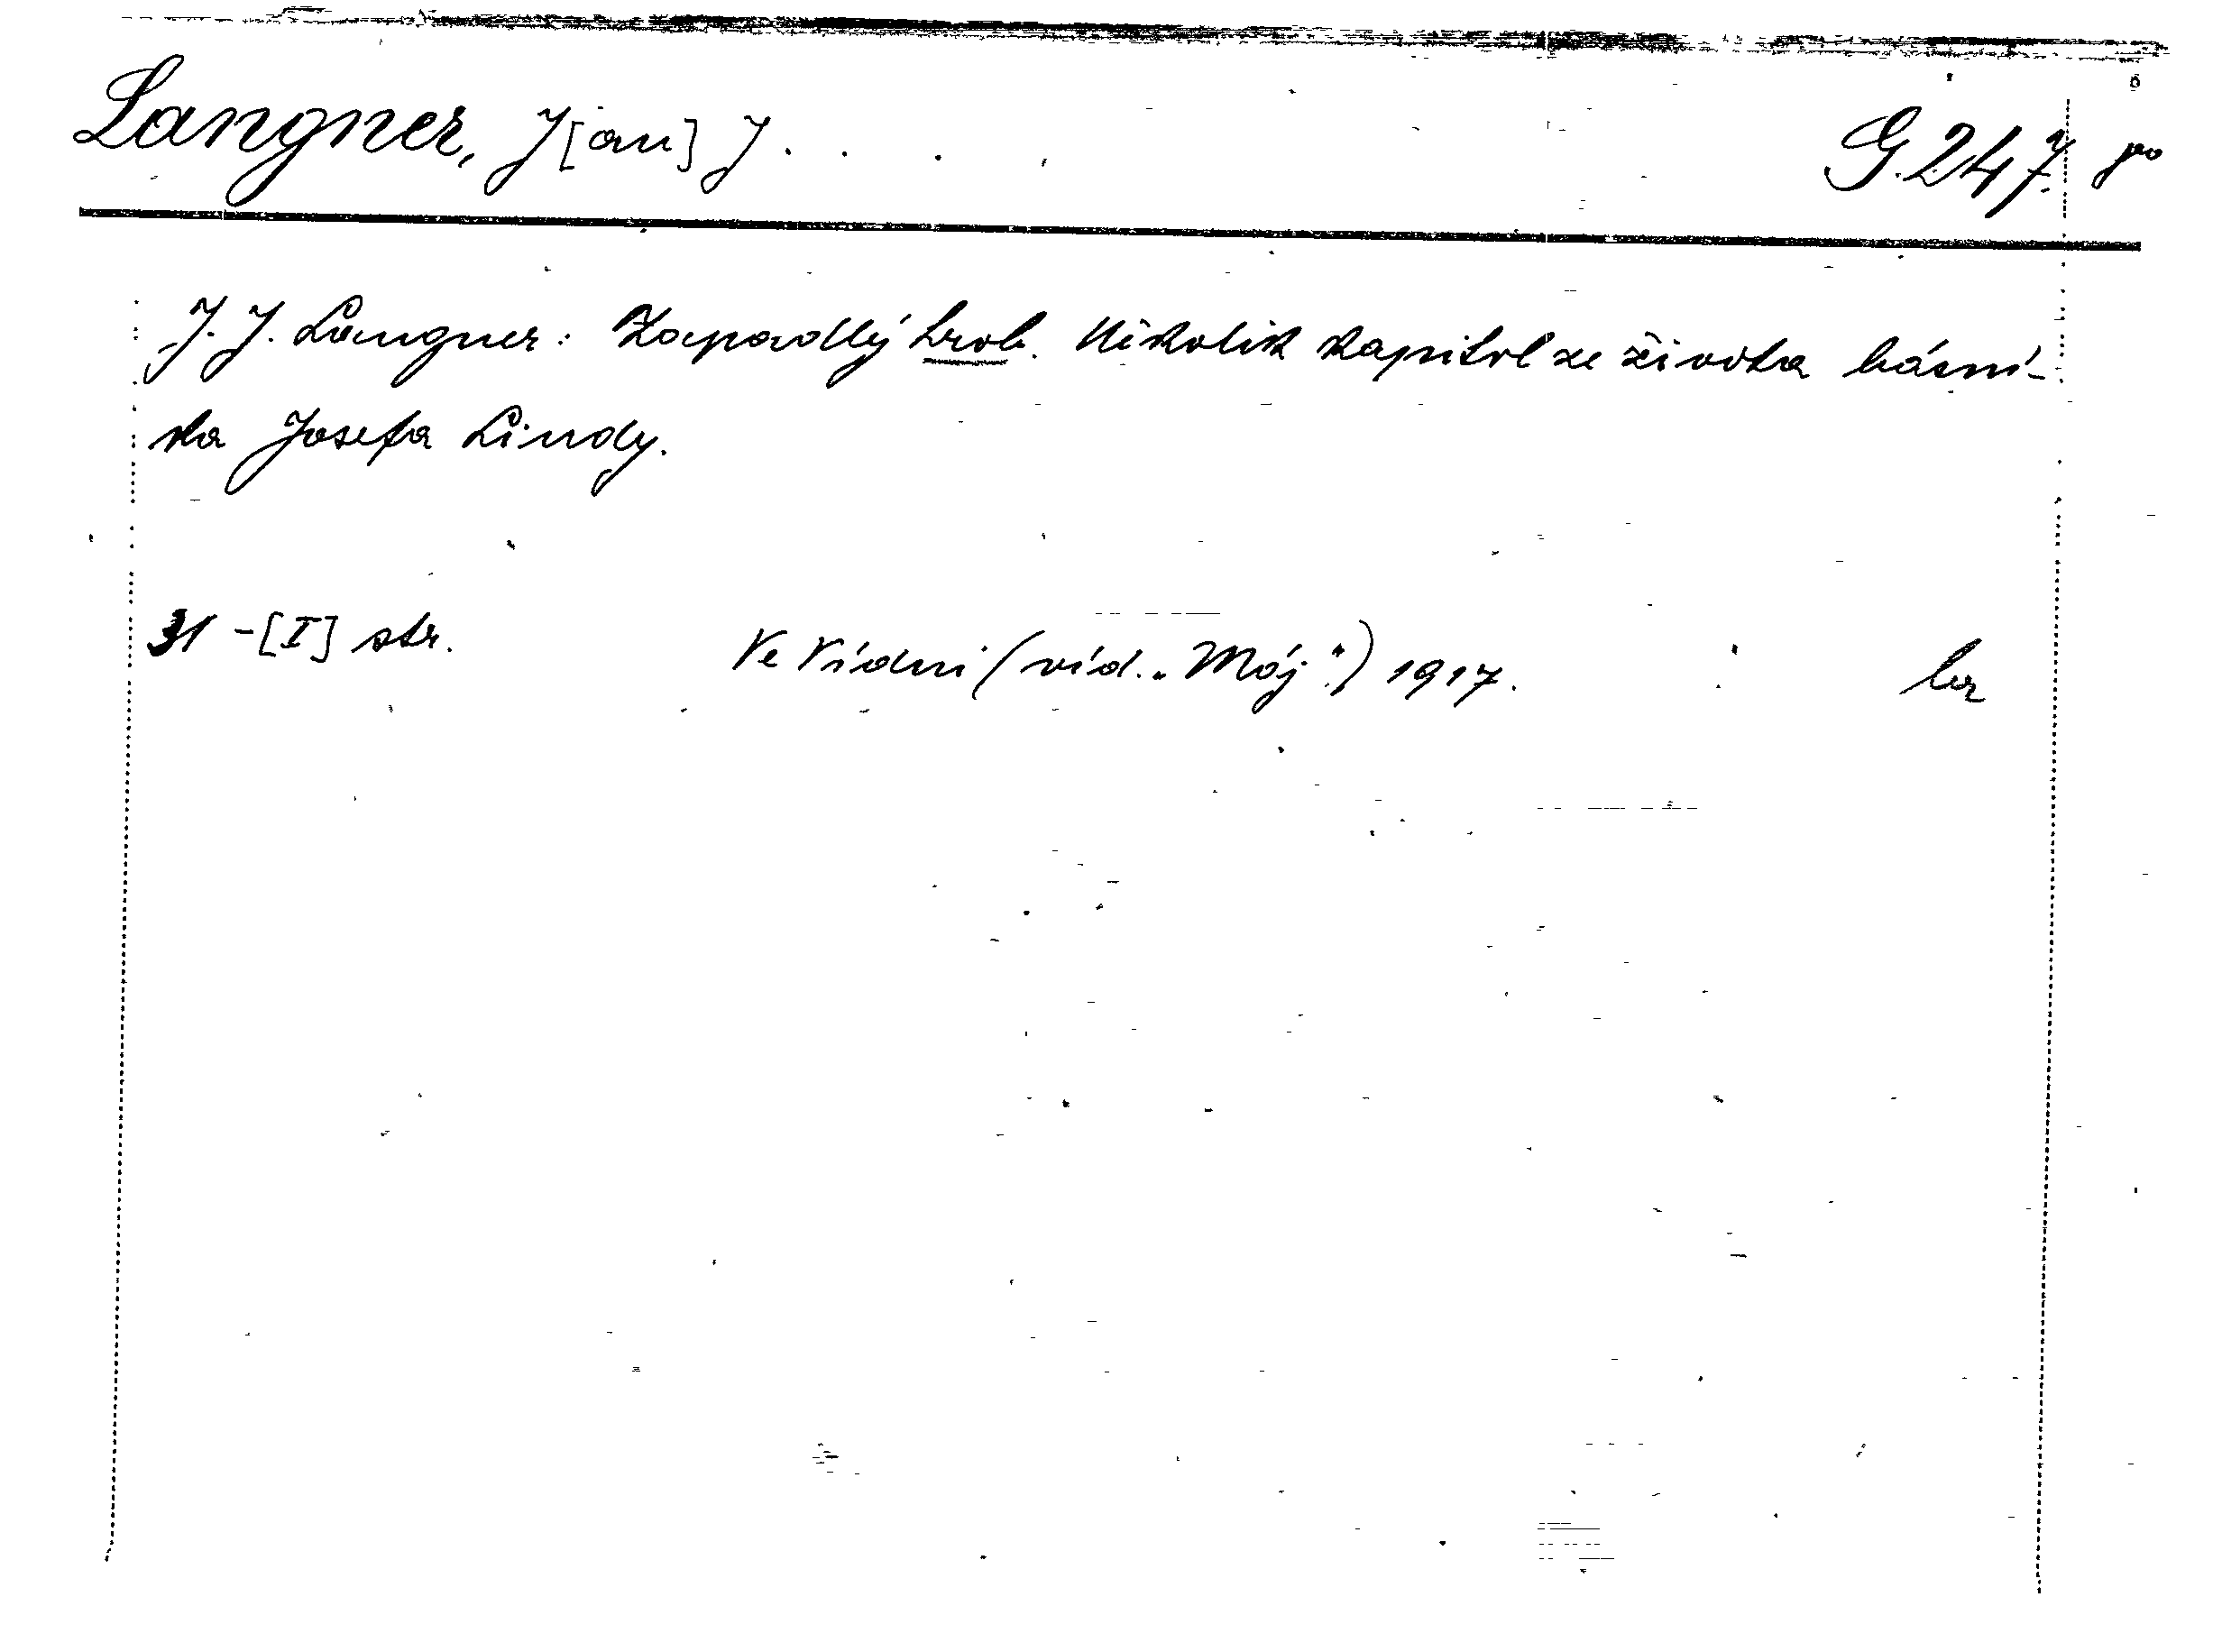 Langner, J[an] J. G.247. po
J. J. Langner: Zapadlý hrob. Několik kapitol ze života básní-
ka Josefa Lindy.
31 -[I] str. Ve Vídni (víd. „Máj") 1917. br